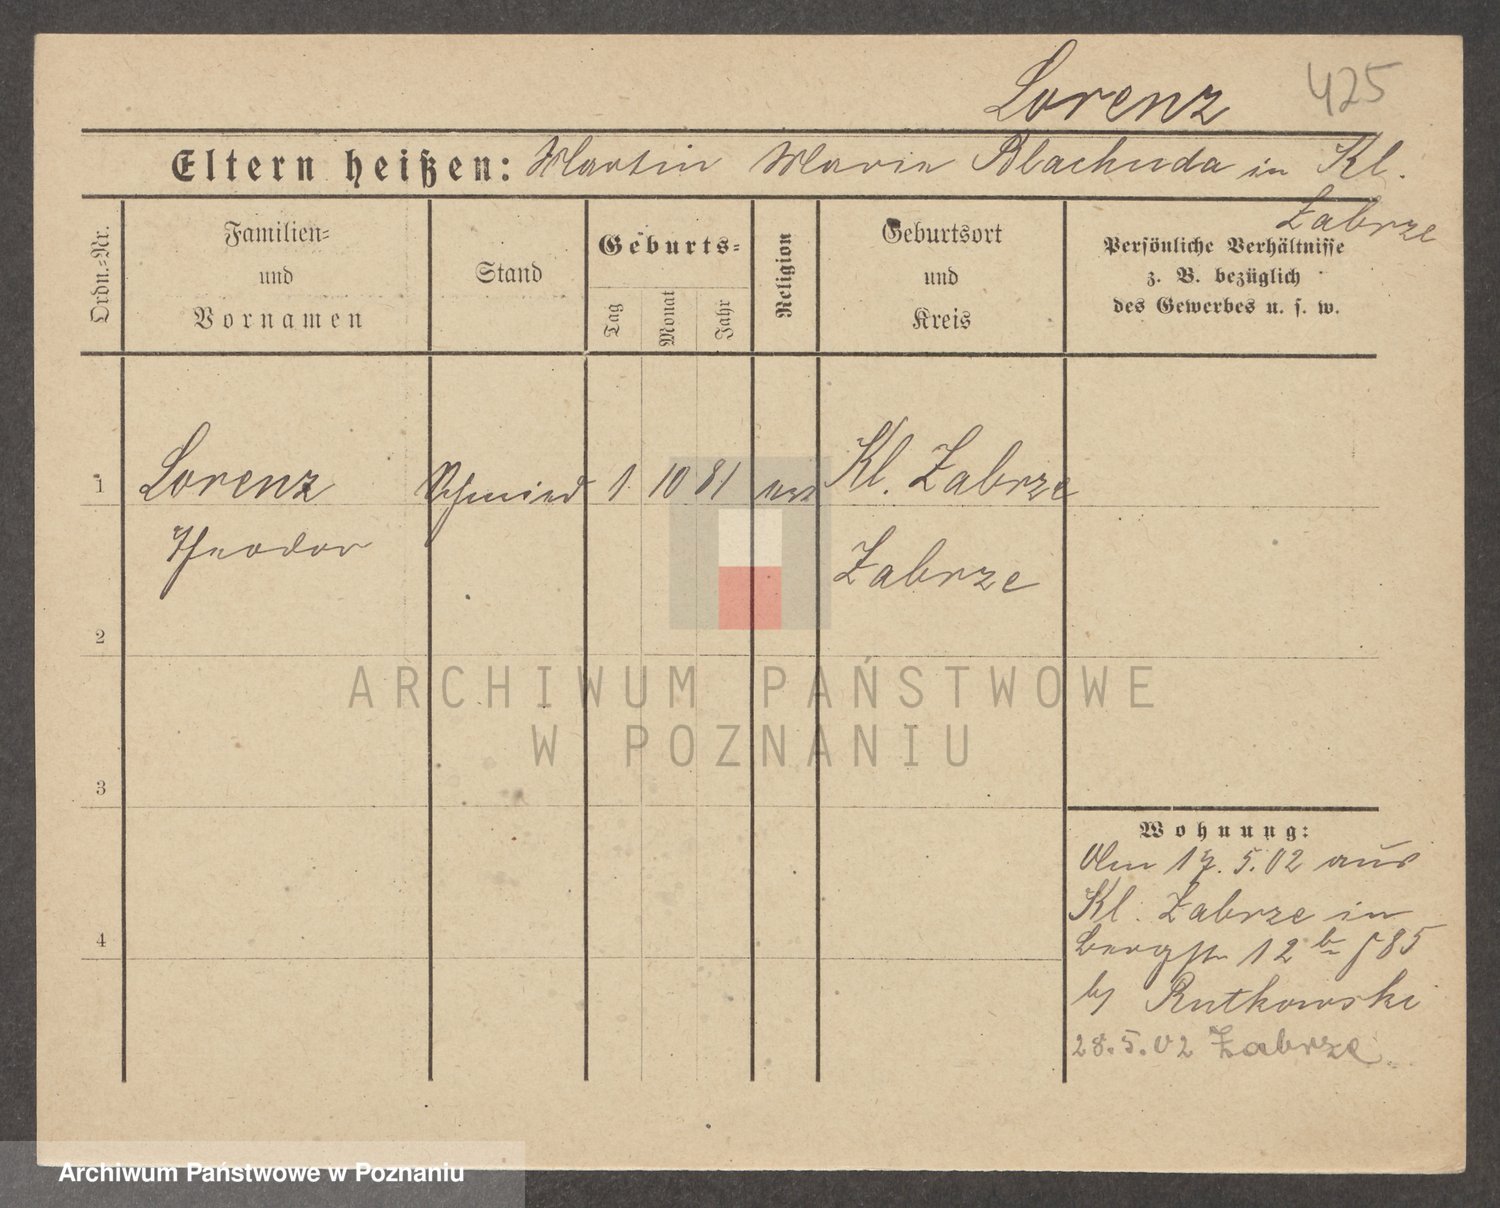 Lorenz 425
Eltern heißen: Martin Marie Blachuda in Kl.
Zabrze
Ordn.-Nr.
Familien-
und
Vornamen
Stand
Geburts-
Tag
Monat
Jahr
Religion
Geburtsort
und
Kreis
Persönliche Verhältnisse
z. B. bezüglich
des Gewerbes u. s. w.
1 Lorenz Schmied 1 10 81 Kl. Zabrze
Theodor Zabrze
2
3
4
Wohnung:
Am 17. 5. 02 aus
Kl. Zabrze in
Bergstr 12 b 585
by Rutkowski
28.5.02 Zabrze
ARCHIWUM PAŃSTWOWE
W POZNANIU
Archiwum Państwowe w Poznaniu